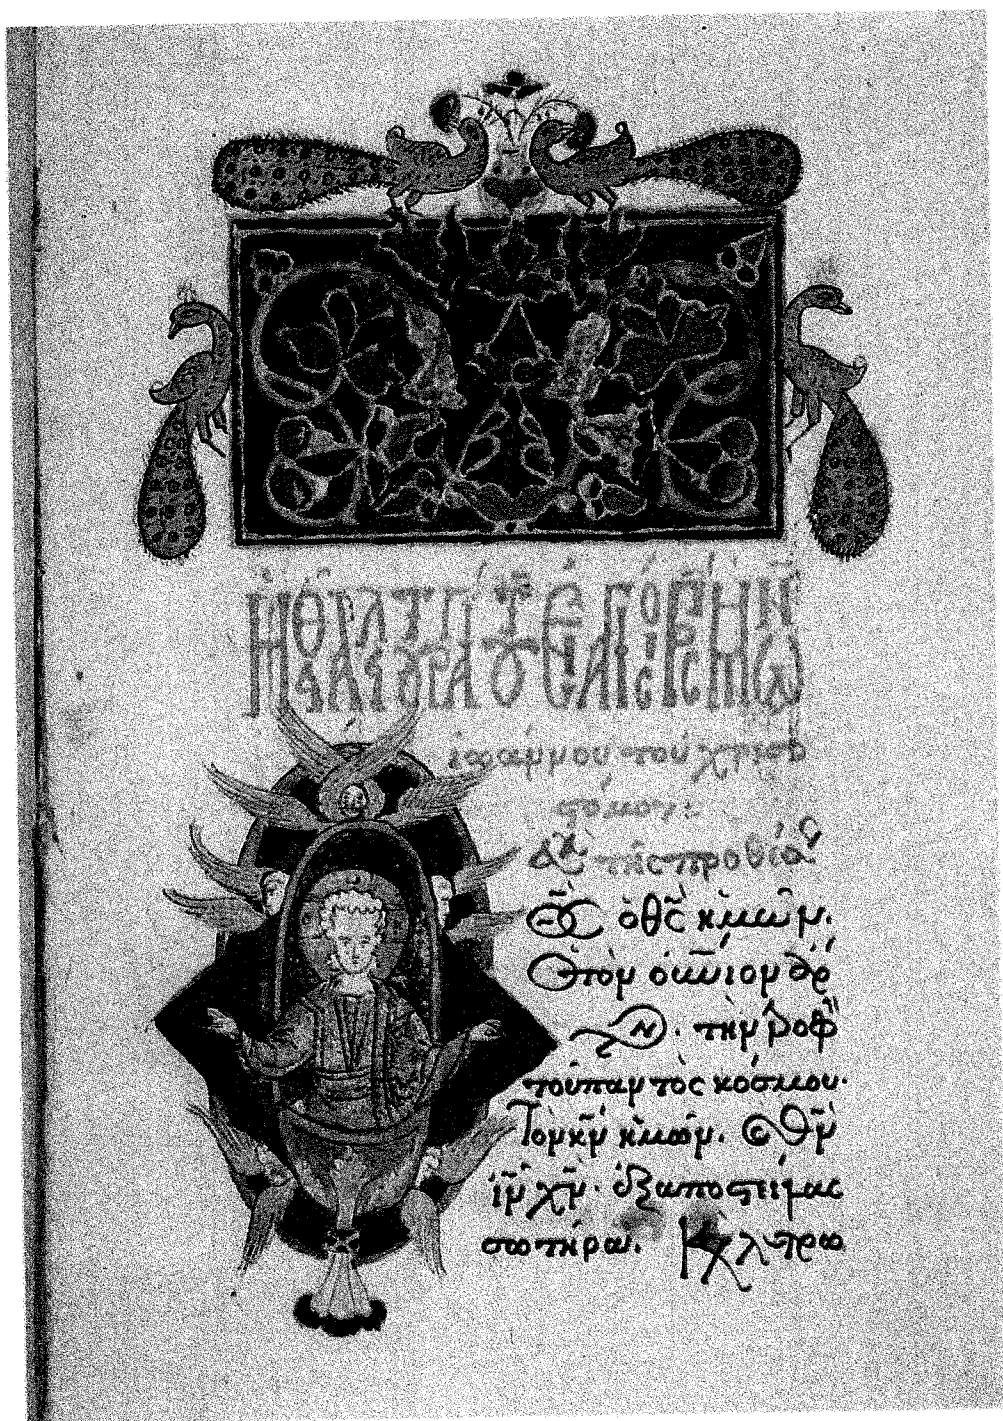 ἰωάννου τοῦ χρυσο
στόμου:
εὐχ τῆς προθέσ
Ὁ θς ὁ θς ἡμῶν.
Ὁ τὸν οὐνιον ἄρ
τον. τὴν τροφὴν
τοῦ παντὸς κόσμου.
Τὸν κν ἡμῶν. καὶ θν
ιν χν. ἐξαποστείλας
σωτῆρα. καὶ λυτρω